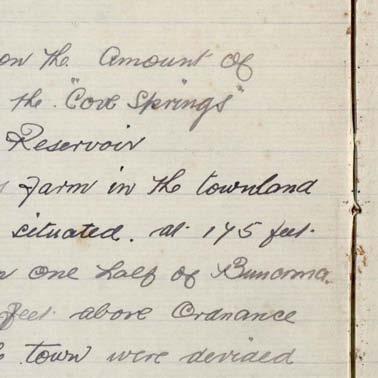 on the Amount of
the "Cove Springs"
Reservoir
Farm in the townland
situated. at 175 feet.
one half of
feet above Ordnance
town were devided